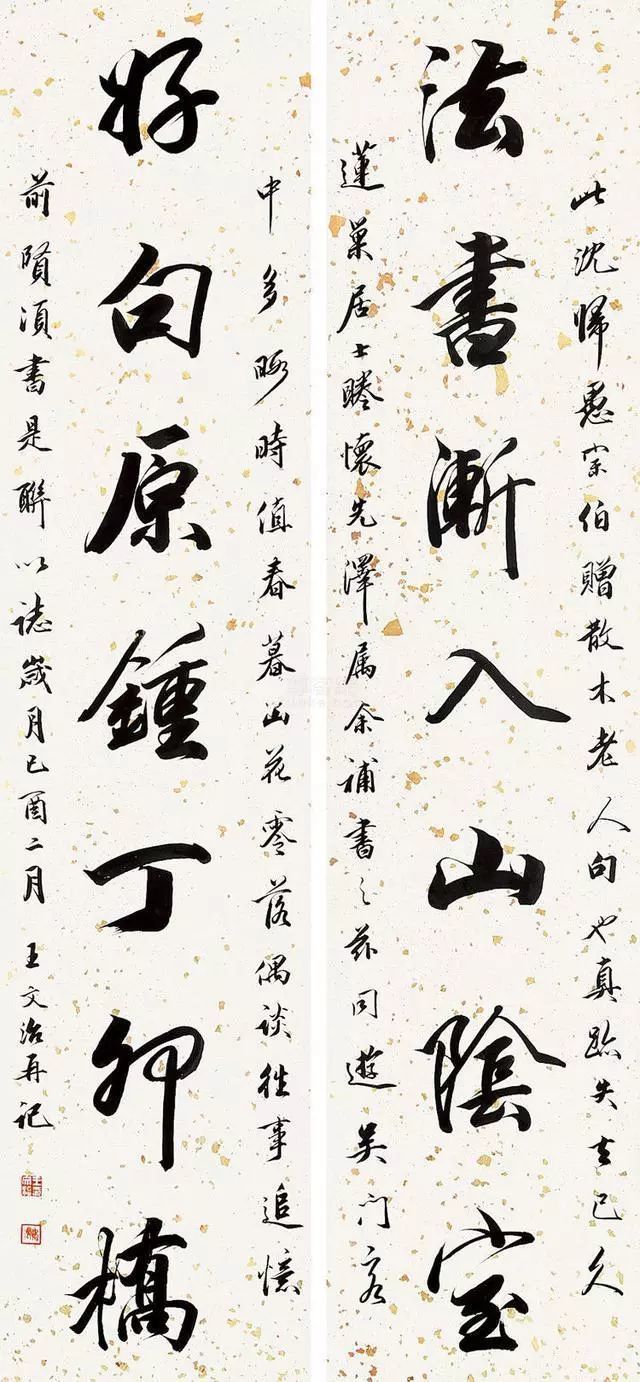 此沈歸愚宗伯贈散木老人句也真跡失去已久
法書漸入山陰室
蓮巢居士睠懷先澤属余補書之茲同遊吳门客
中多暇時值春暮山花零落偶談往事追憶
好句原鍾丁卯橋
前書是聯以誌歲月己酉二月 王文治再记